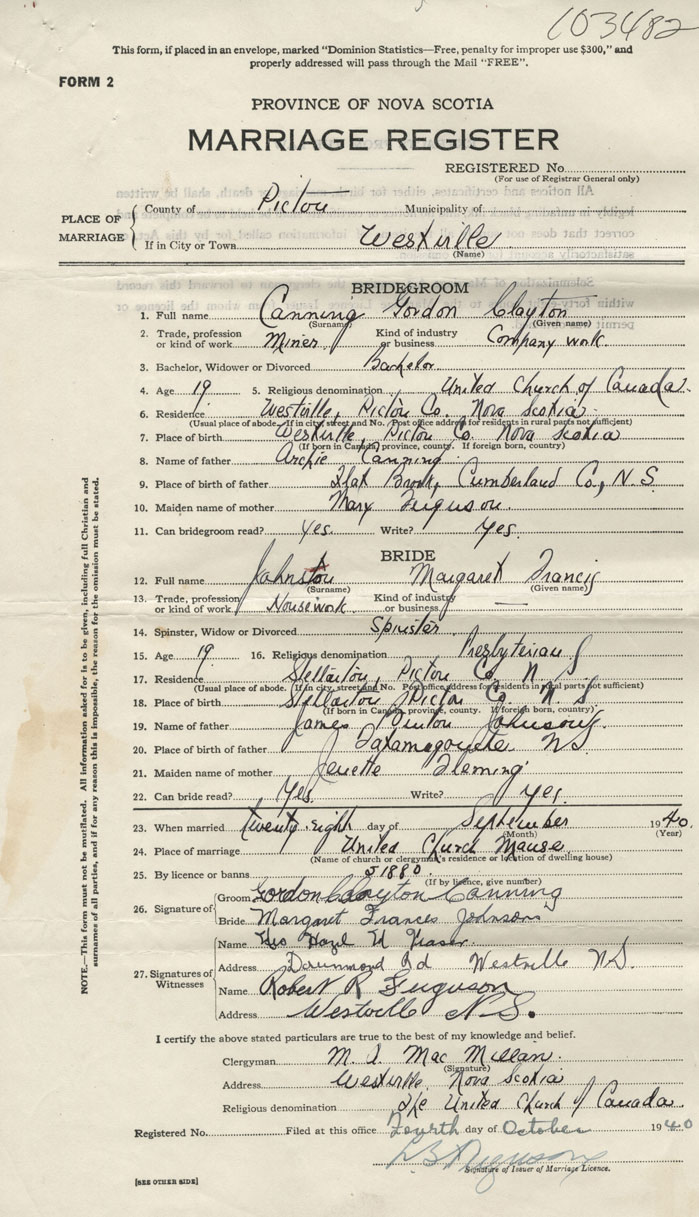 103482
This form, if placed in an envelope, marked "Dominion Statistics—Free, penalty for improper use $300," and
properly addressed will pass through the Mail "FREE".
FORM 2
PROVINCE OF NOVA SCOTIA
MARRIAGE REGISTER
REGISTERED No.
(For use of Registrar General only)
PLACE OF MARRIAGE
County of Pictou Municipality of
If in City or Town Westville
(Name)
BRIDEGROOM
1. Full name Canning Gordon Clayton
(Surname) (Given name)
2. Trade, profession or kind of work Miner Kind of industry or business Company work
3. Bachelor, Widower or Divorced Bachelor
4. Age 19 5. Religious denomination United Church of Canada
6. Residence Westville, Pictou Co. Nova Scotia
(Usual place of abode. If in city, street and No. Post office address for residents in rural parts not sufficient)
7. Place of birth Westville, Pictou Co. Nova Scotia
(If born in Canada, province, county. If foreign born, country)
8. Name of father Archie Canning
9. Place of birth of father Brook, Cumberland Co., N.S.
10. Maiden name of mother Mary Ferguson
11. Can bridegroom read? Yes. Write? Yes.
BRIDE
12. Full name Johnston Margaret Francis
(Surname) (Given name)
13. Trade, profession or kind of work Housework Kind of industry or business —
14. Spinster, Widow or Divorced Spinster
15. Age 19 16. Religious denomination Presbyterian
17. Residence Stellarton, Pictou Co. N.S
(Usual place of abode. If in city, street and No. Post office address for residents in rural parts not sufficient)
18. Place of birth Stellarton Pictou Co. N.S
(If born in Canada, province, county. If foreign born, country)
19. Name of father James Johnson
20. Place of birth of father Tatamagouche NS
21. Maiden name of mother Fleming
22. Can bride read? Yes. Write? Yes.
23. When married twenty eighth day of September 1940.
(Month) (Year)
24. Place of marriage United Church Manse
(Name of church or clergyman's residence or location of dwelling house)
25. By licence or banns 51880
(If by licence, give number)
26. Signature of
Groom Gordon Clayton Canning
Bride Margaret Frances Johnson
27. Signatures of Witnesses
Name Hazel Fraser
Address Drummond Rd Westville N.S.
Name Robert R Ferguson
Address Westville N.S.
I certify the above stated particulars are true to the best of my knowledge and belief.
Clergyman M. Mac Millan.
(Signature)
Address Westville, Nova Scotia
Religious denomination The United Church of Canada
Registered No. Filed at this office Fourth day of October 1940
Ferguson
Signature of Issuer of Marriage Licence.
[SEE OTHER SIDE]
NOTE.—This form must not be mutilated. All information asked for is to be given, including full Christian and
surnames of all parties, and if for any reason this is impossible, the reason for the omission must be stated.